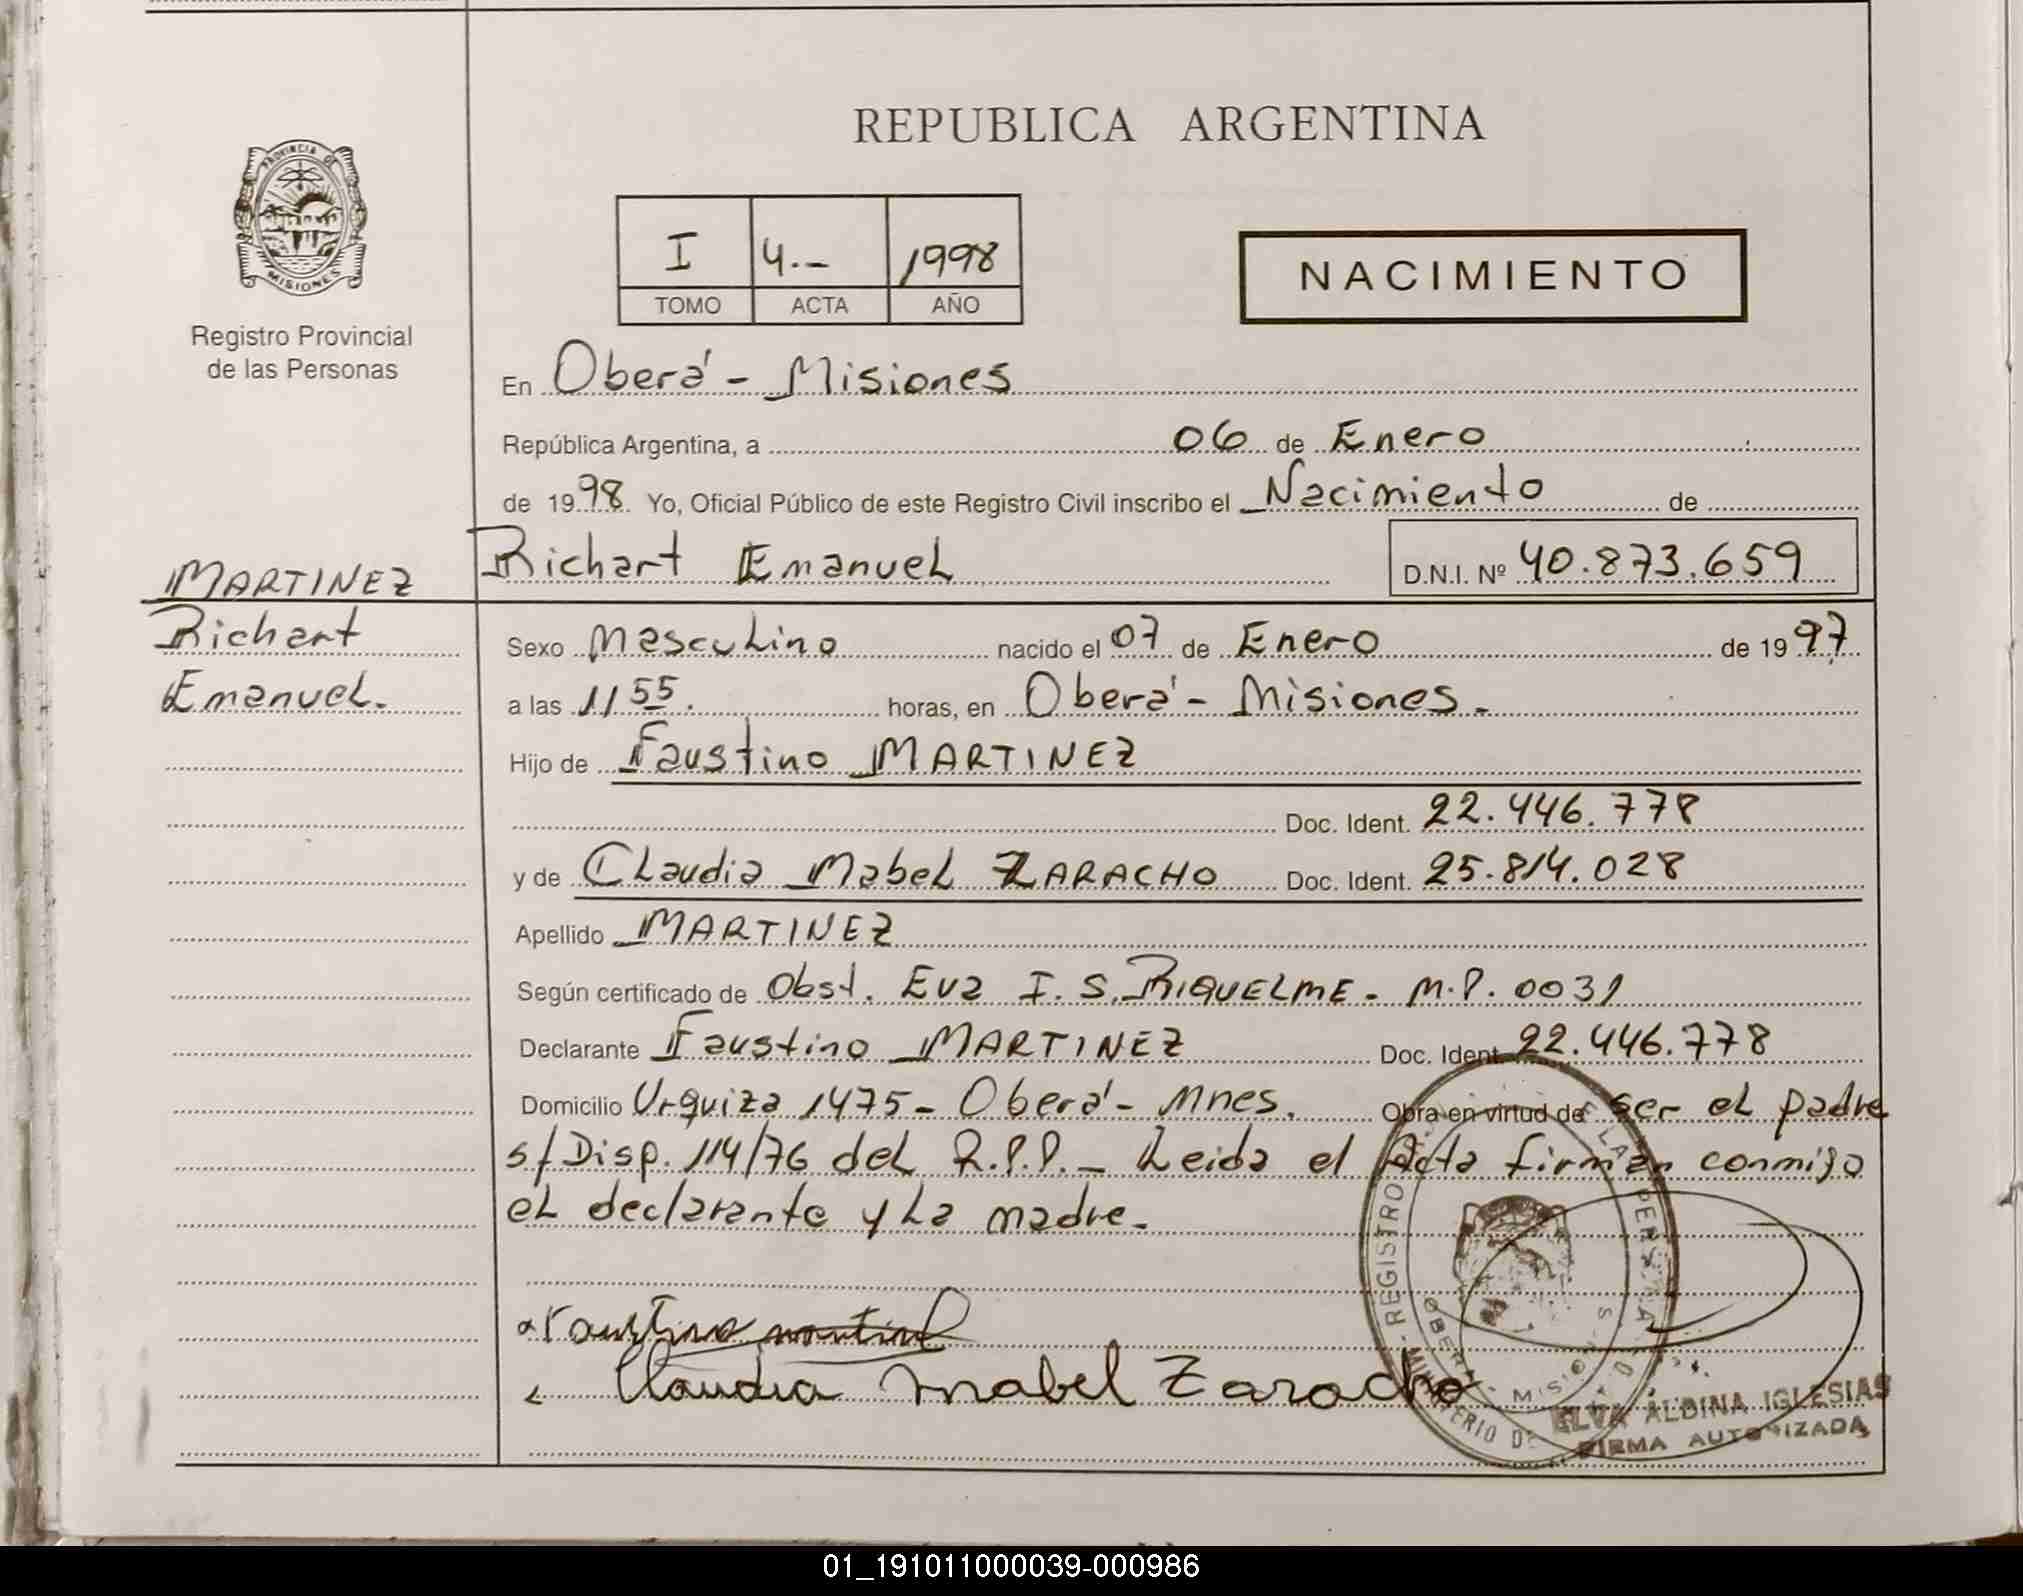 REPUBLICA ARGENTINA
PROVINCIA DE
MISIONES
Registro Provincial
de las Personas
I 4.- 1998
TOMO ACTA AÑO
NACIMIENTO
En Oberá - Misiones
República Argentina, a 06 de Enero
de 1998 Yo, Oficial Público de este Registro Civil inscribo el Nacimiento de
Richart Emanuel D.N.I. Nº 40.873.659
MARTINEZ
Richart
Emanuel.
Sexo Masculino nacido el 07 de Enero de 1997
a las 11 55. horas, en Oberá - Misiones.
Hijo de Faustino MARTINEZ
Doc. Ident. 22.446.778
y de Claudia Mabel ZARACHO Doc. Ident. 25.814.028
Apellido MARTINEZ
Según certificado de Obst. Eva I. S. RIQUELME. M.P. 0031
Declarante Faustino MARTINEZ Doc. Ident. 22.446.778
Domicilio Urquiza 1475 - Oberá - Mnes. Obra en virtud de ser el padre
s/Disp. 114/76 del R.P.P. - Leida el Acta firman conmigo
el declarante y la madre.
Faustino Martinez
Claudia Mabel Zaracho
REGISTRO
OBERA - MISIONES
ELVA ALDINA IGLESIAS
FIRMA AUTORIZADA
01_191011000039-000986